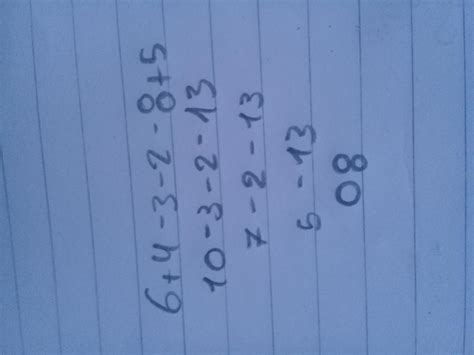 6+4-3-2-8+5
10-3-2-13
7-2-13
5-13
08